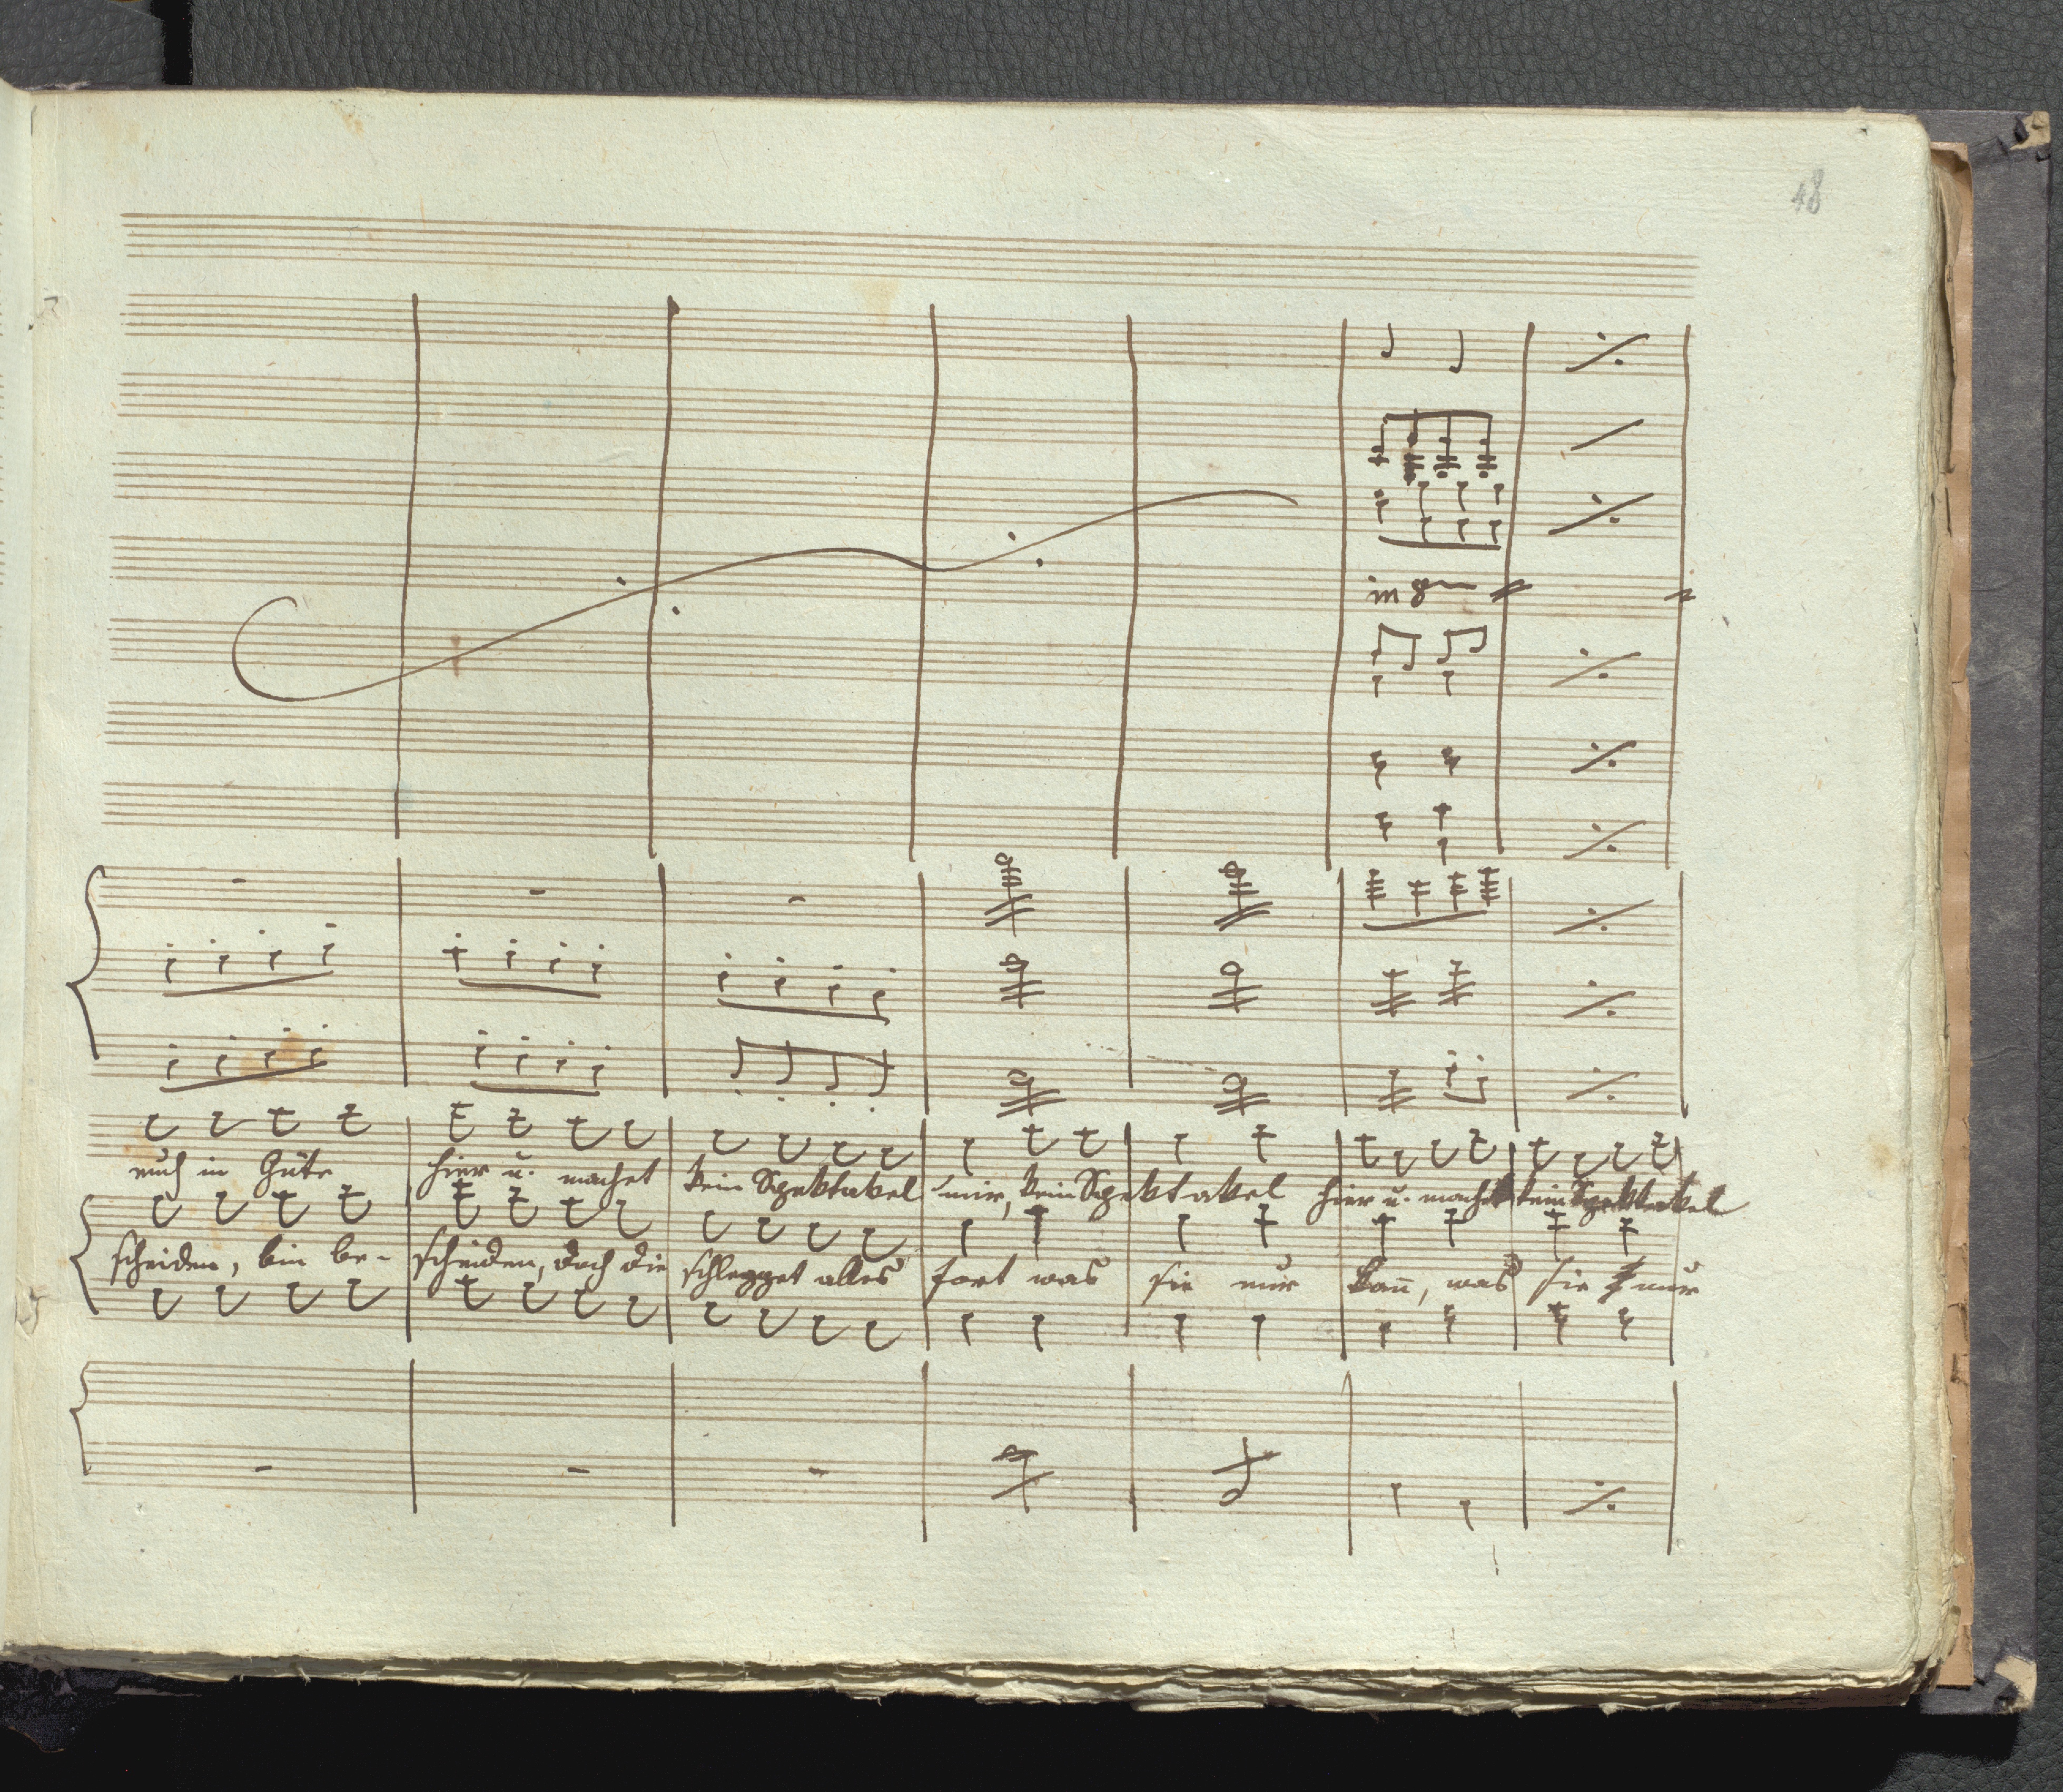 48
in 8
euch in Güte hier u. machet kein Spektakel mir, kein Spektakel hier u. machet kein Spektakel
scheiden, bin be- scheiden, doch die schlegget alles fort was sie nur kan̄, was sie nur